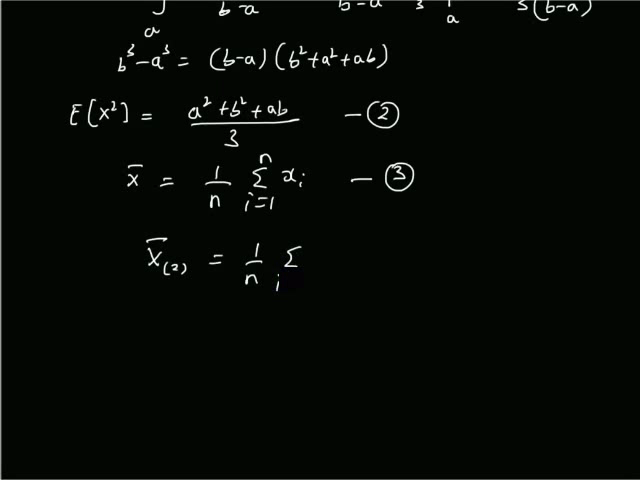 ∫ a b-a b-a 3 | a 3(b-a)
b³-a³ = (b-a) (b²+a²+ab)
E[X²] = (a²+b²+ab)/3 — ②
x̄ = 1/n Σ_{i=1}^{n} x_i — ③
X̄_(2) = 1/n Σ_i